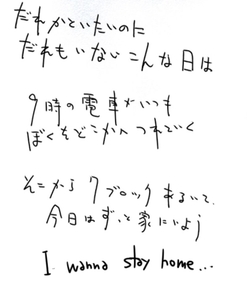 だれかといたいのに
だれもいないこんな日は
9時の電車がいつも
ぼくをどこかへつれていく
そこから7ブロックあるいて
今日はずっと家にいよう
I wanna stay home...